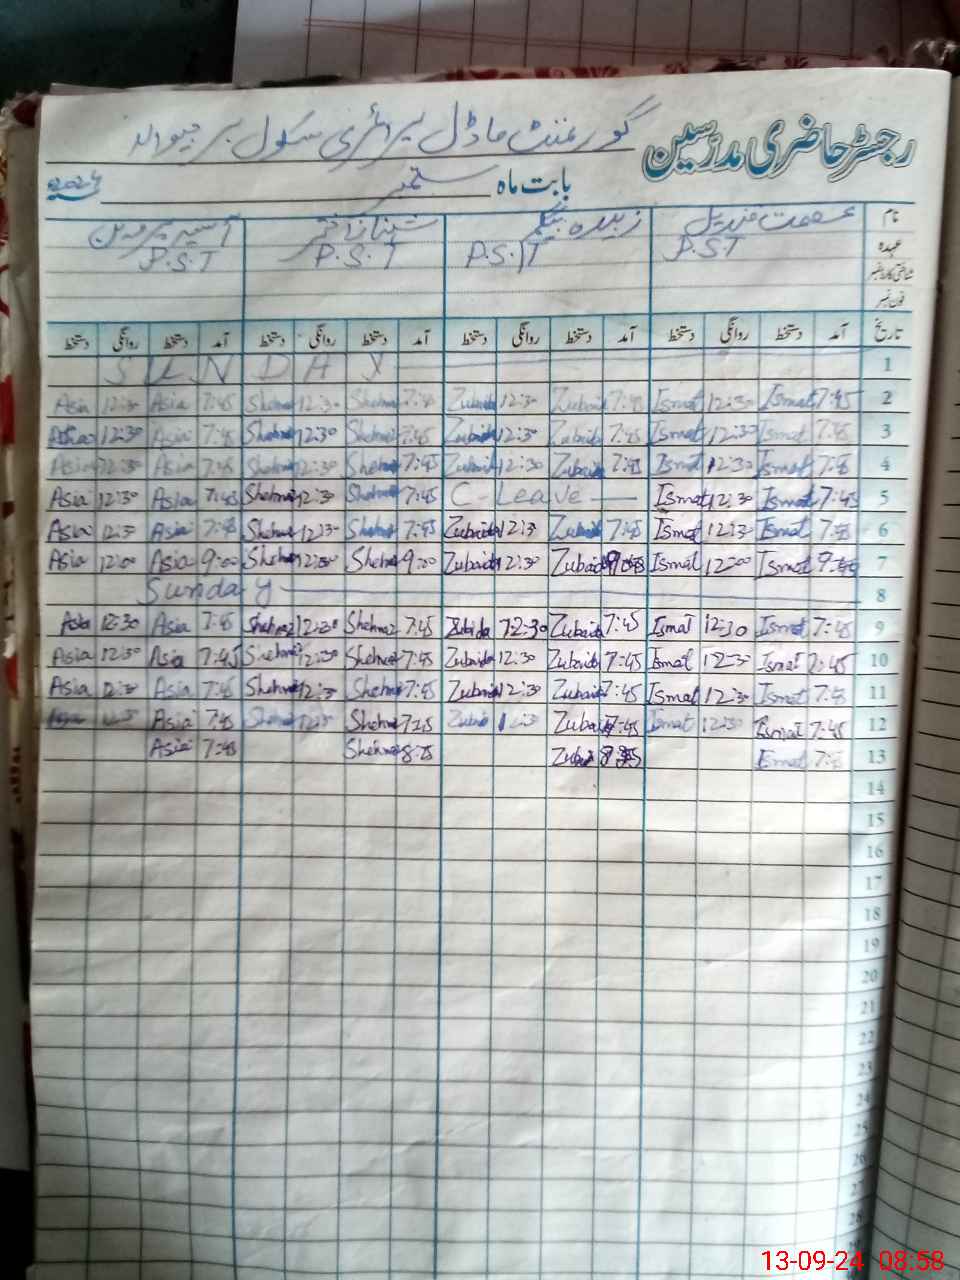 رجسٹر حاضری مدرسین گورنمنٹ ماڈل پرائمری سکول
بابت ماہ ستمبر 2024
نام عصمت قندیل زبیدہ بیگم شہناز اختر آسیہ پروین
عہدہ P.S.T P.S.T P.S.T P.S.T
شناختی کارڈ نمبر
فون نمبر
تاریخ آمد دستخط روانگی دستخط آمد دستخط روانگی دستخط آمد دستخط روانگی دستخط آمد دستخط روانگی دستخط
SUNDAY 1
Asia 12:30 Asia 7:45 Shehnaz 12:30 Shehnaz 7:45 Zubaida 12:30 Zubaida 7:45 Ismat 12:30 Ismat 7:45 2
Asia 12:30 Asia 7:45 Shehnaz 12:30 Shehnaz 7:45 Zubaida 12:30 Zubaida 7:45 Ismat 12:30 Ismat 7:45 3
Asia 12:30 Asia 7:45 Shehnaz 12:30 Shehnaz 7:45 Zubaida 12:30 Zubaida 7:45 Ismat 12:30 Ismat 7:45 4
Asia 12:30 Asia 7:45 Shehnaz 12:30 Shehnaz 7:45 C-Leave Ismat 12:30 Ismat 7:45 5
Asia 12:30 Asia 7:45 Shehnaz 12:30 Shehnaz 7:45 Zubaida 12:30 Zubaida 7:45 Ismat 12:30 Ismat 7:45 6
Asia 12:00 Asia 9:00 Shehnaz 12:00 Shehnaz 9:00 Zubaida 12:30 Zubaida Ismat 12:00 Ismat 7
Sunday 8
Asia 12:30 Asia 7:45 Shehnaz 12:30 Shehnaz 7:45 Zubida 12:30 Zubaida 7:45 Ismat 12:30 Ismat 7:45 9
Asia 12:30 Asia 7:45 Shehnaz 12:30 Shehnaz 7:45 Zubaida 12:30 Zubaida 7:45 Ismat 12:30 Ismat 7:45 10
Asia 12:30 Asia 7:45 Shehnaz 12:30 Shehnaz 7:45 Zubaida 12:30 Zubaida 7:45 Ismat 12:30 Ismat 7:45 11
Asia 12:30 Asia 7:45 Shehnaz 12:30 Shehnaz Zubaida 12:30 Zubaida 7:45 Ismat 12:30 Ismat 7:45 12
Asia 7:45 Shehnaz Zubaida Ismat 7:45 13
14
15
16
17
18
19
20
21
22
23
24
25
26
27
28
13-09-24 08:58